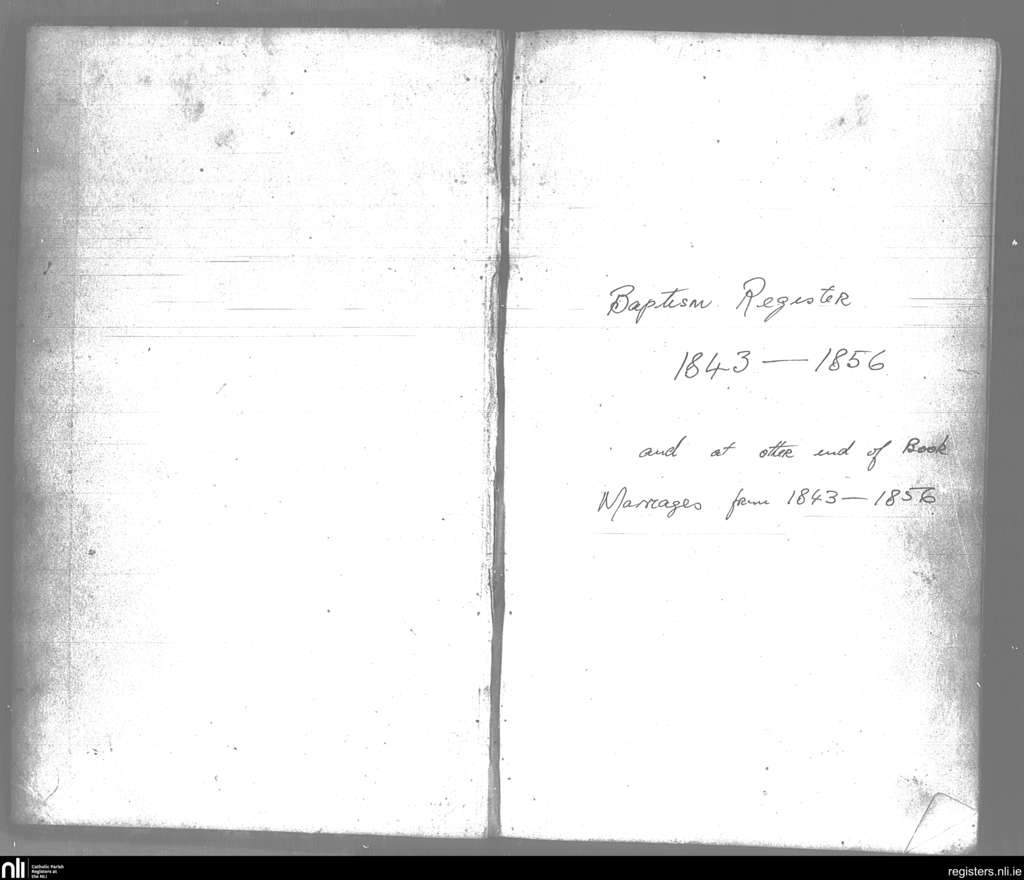 Baptism Register
1843 — 1856
and at other end of Book
Marriages from 1843 — 1856
nli
Catholic Parish
Registers at
the NLI
registers.nli.ie